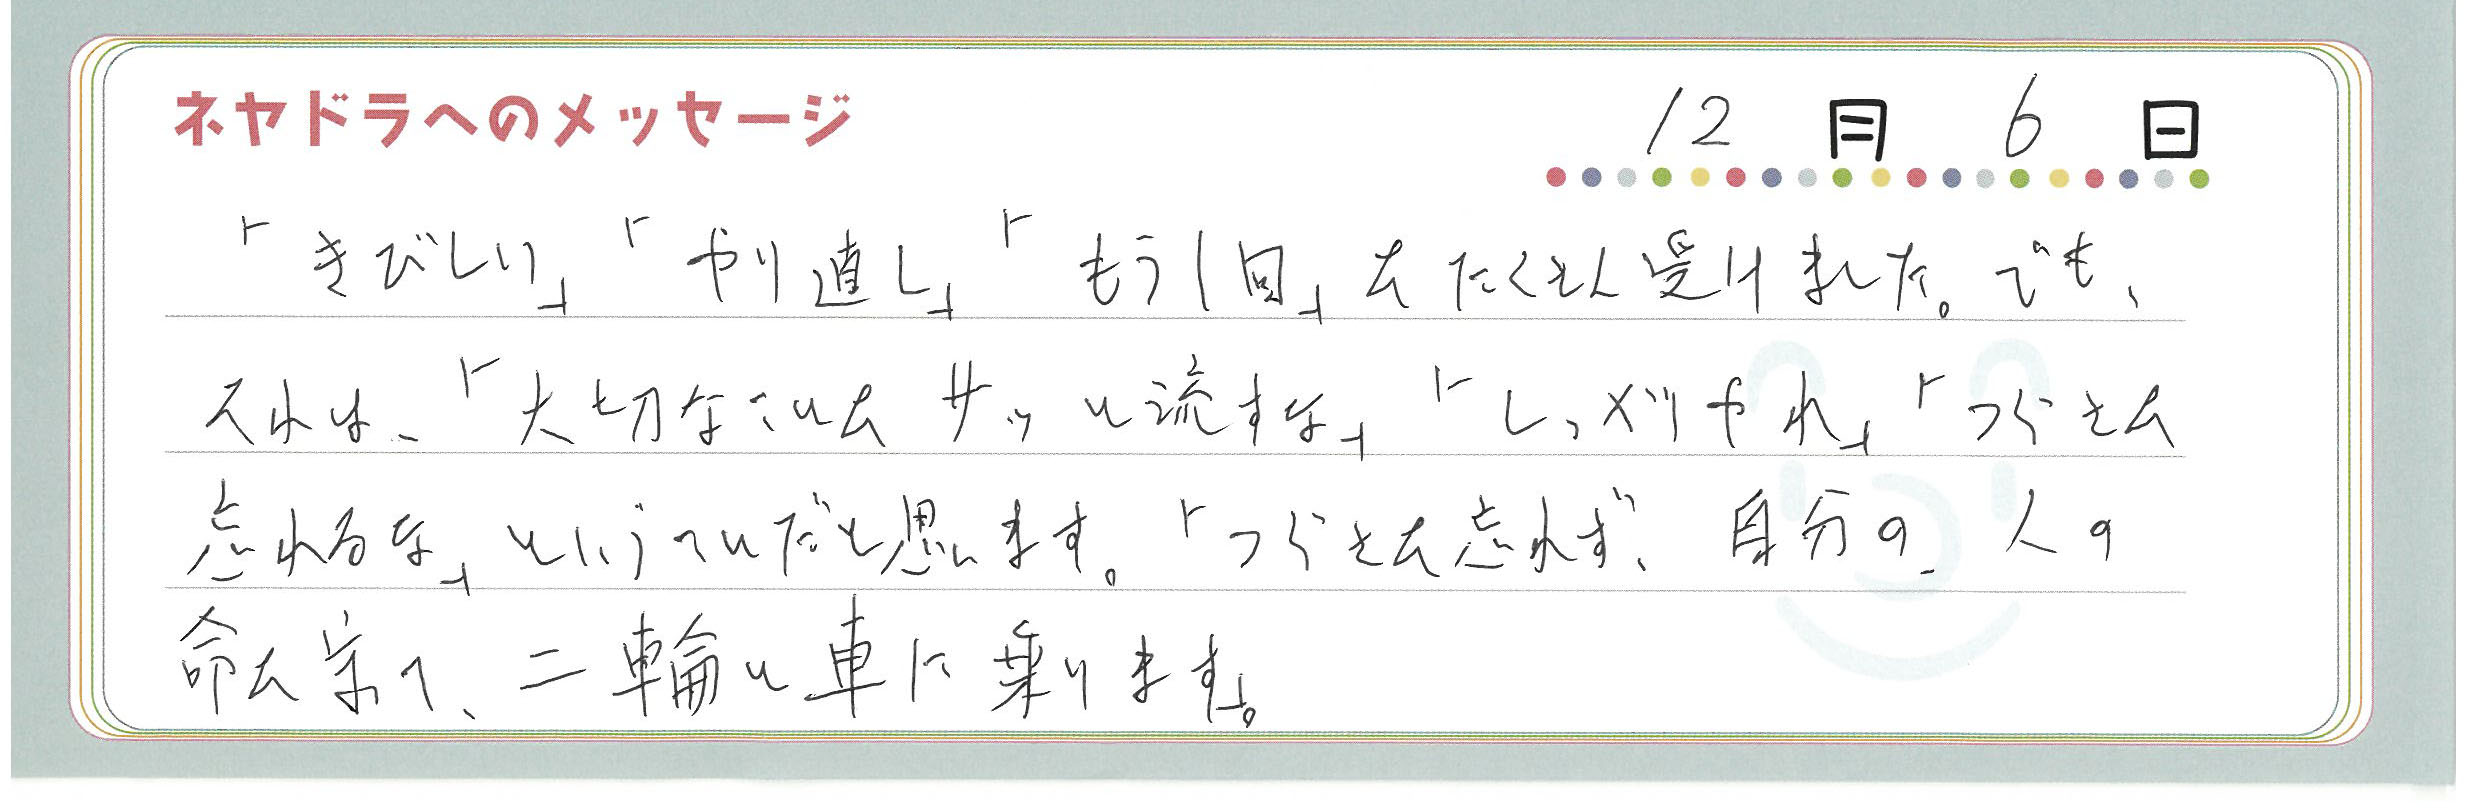 ネヤドラへのメッセージ
12月 6日
「きびしい」「やり直し」「もう1回」をたくさん受けました。でも、
それは、「大切なことをサッと流すな」「しっかりやれ」「つらさを
忘れるな」ということだと思います。「つらさを忘れず、自分の、人の
命を守って、二輪と車に乗ります」。